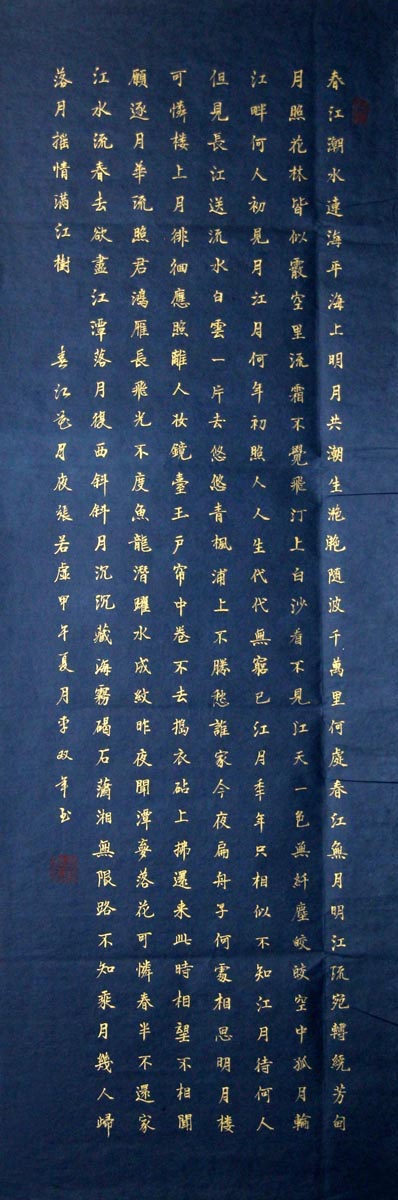 春江潮水連海平海上明月共潮生灧灧随波千萬里何處春江無月明江流宛轉繞芳甸
月照花林皆似霰空里流霜不覺飛汀上白沙看不見江天一色無纤塵皎皎空中孤月輪
江畔何人初見月江月何年初照人人生代代無窮已江月秊年只相似不知江月待何人
但見長江送流水白雲一片去悠悠青楓浦上不勝愁誰家今夜扁舟子何處相思明月楼
可憐楼上月徘徊應照離人妝鏡臺玉户帘中卷不去搗衣砧上拂還来此時相望不相聞
願逐月華流照君鴻雁長飛光不度魚龍潛躍水成紋昨夜聞潭夢落花可憐春半不還家
江水流春去欲盡江潭落月復西斜斜月沉沉藏海霧碣石瀟湘無限路不知乘月幾人歸
落月摇情满江樹 春江花月夜張若虚甲午夏月李双年书